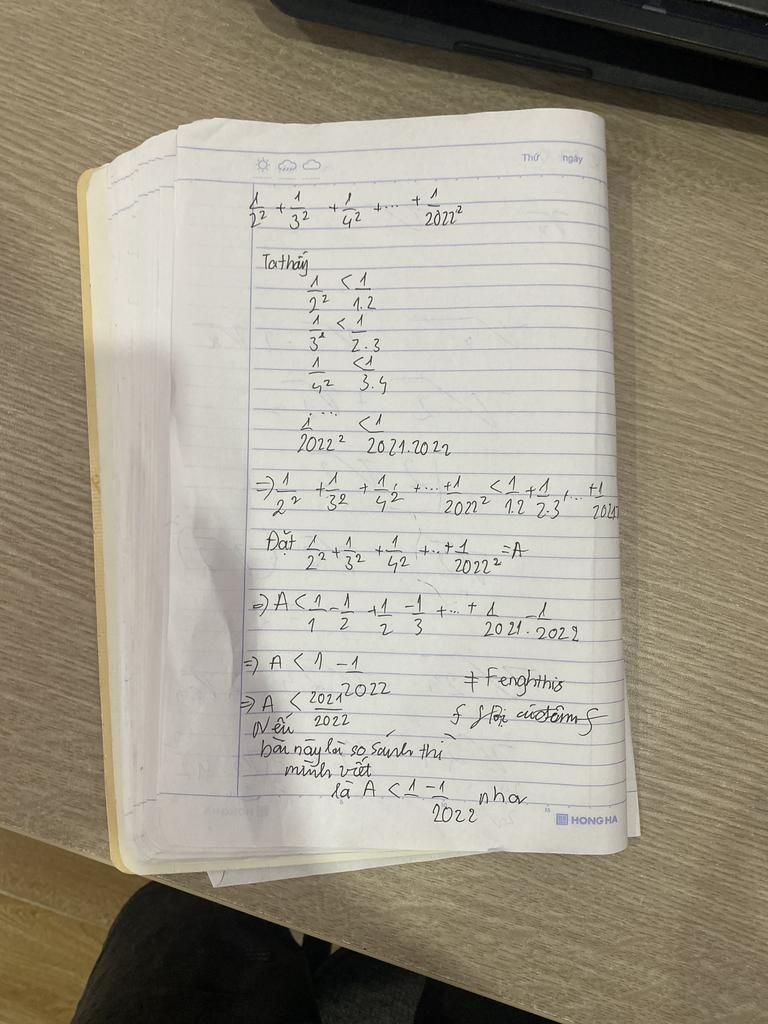 Thứ ngày
1/2² + 1/3² + 1/4² + ... + 1/2022²
Ta thấy
1/2² < 1/1.2
1/3² < 1/2.3
1/4² < 1/3.4
....
1/2022² < 1/2021.2022
=> 1/2² + 1/3² + 1/4² + ... + 1/2022² < 1/1.2 + 1/2.3 + ... + 1/2021
Đặt 1/2² + 1/3² + 1/4² + ... + 1/2022² = A
=> A < 1/1 - 1/2 + 1/2 - 1/3 + ... + 1/2021 - 1/2022
=> A < 1 - 1/2022
=> A < 2021/2022
# Fenghthis
Nếu
bài này là so sánh thì
mình viết
là A < 1 - 1/2022 nha
HONG HA